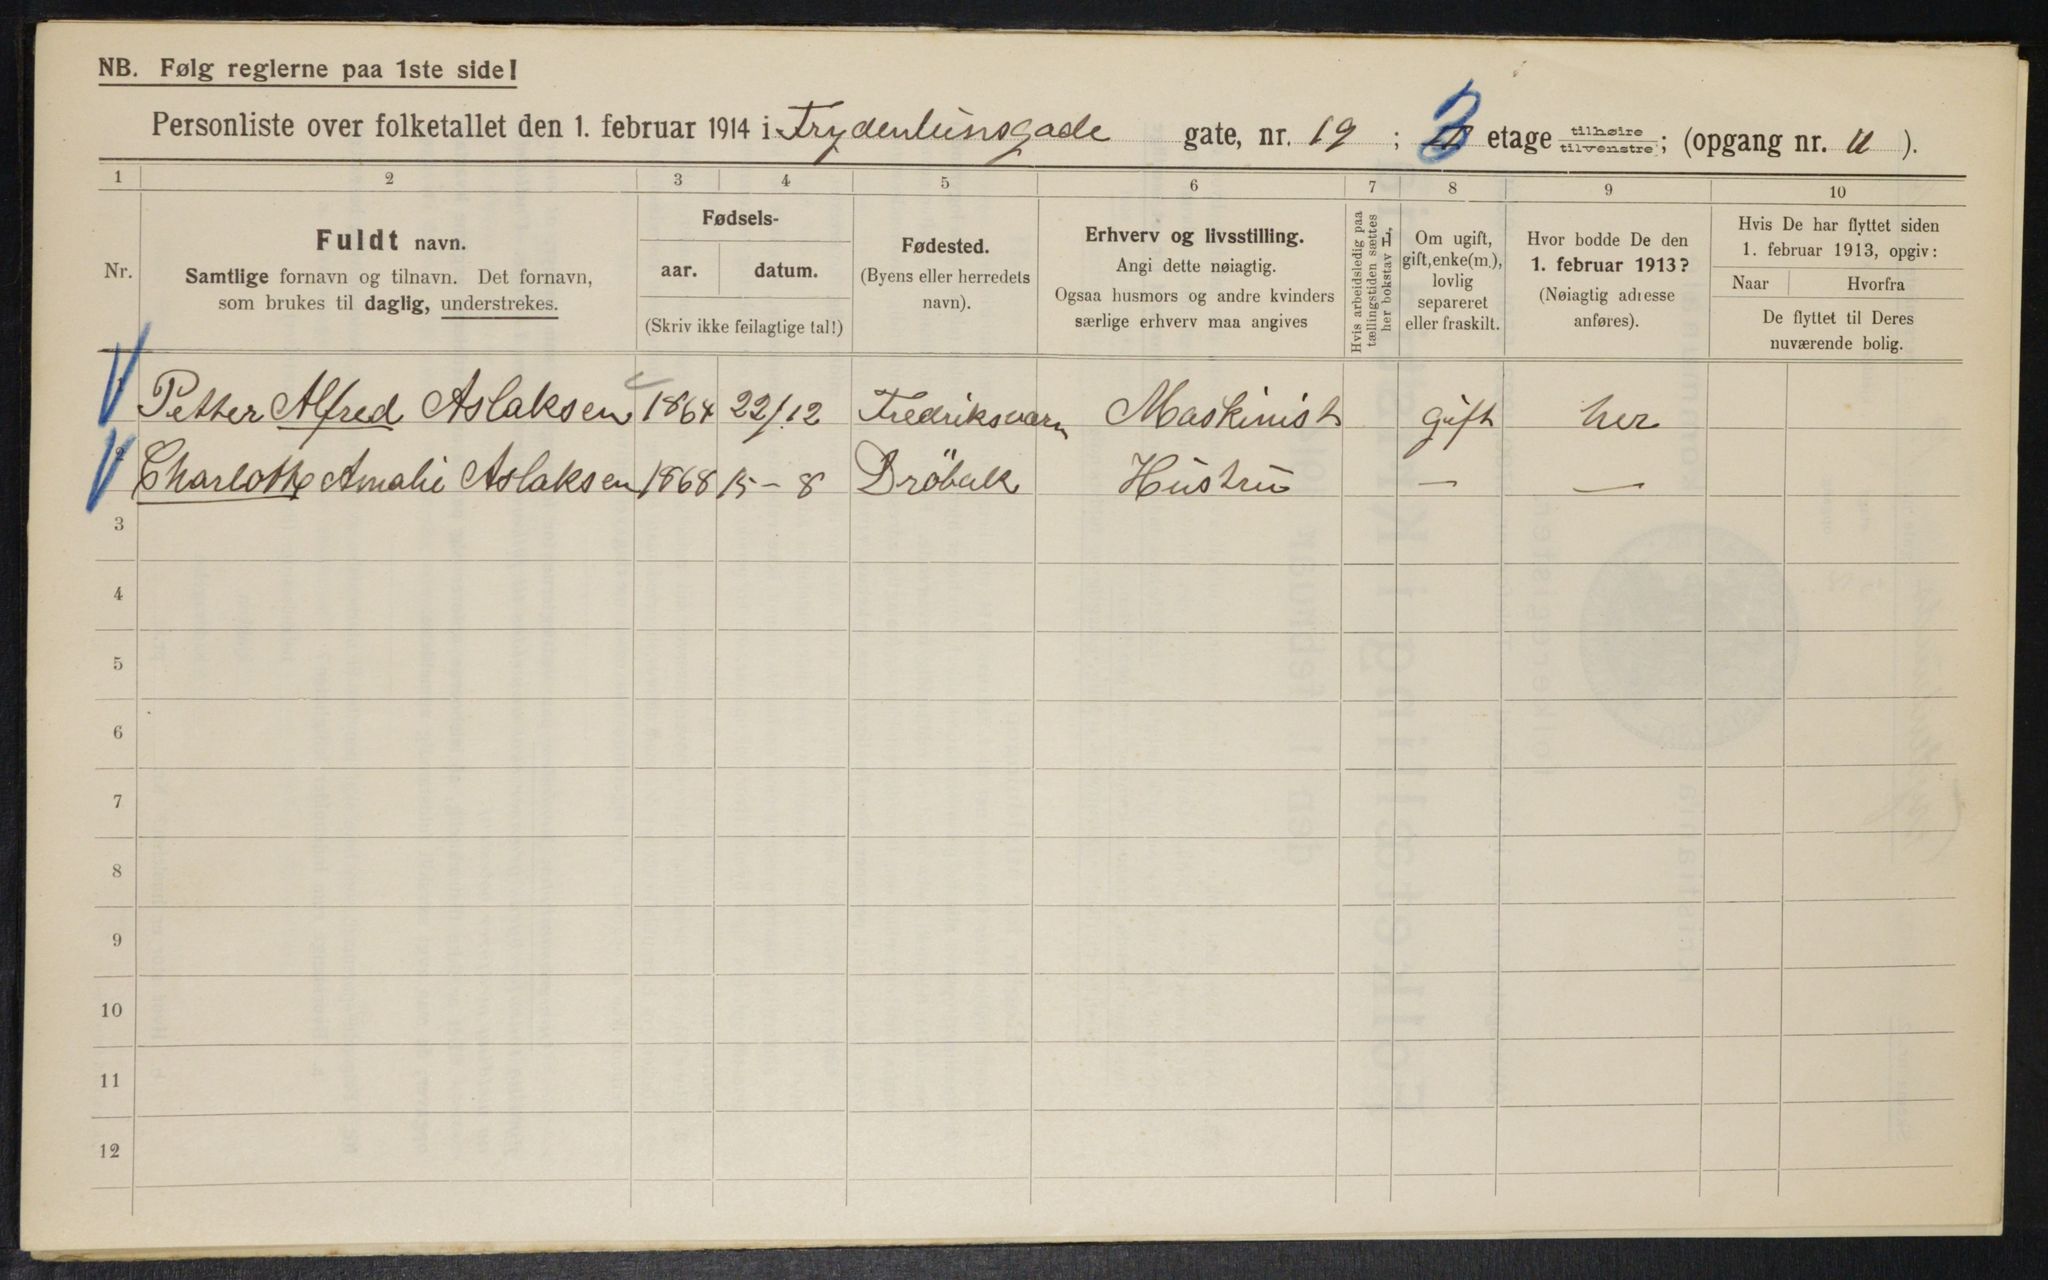 NB. Følg reglerne paa 1ste side!
Personliste over folketallet den 1. februar 1914 i Frydenlunsgade gate, nr. 19 ; 3 etage tilhøire tilvenstre ; (opgang nr. II ).
1 2 3 4 5 6 7 8 9 10
Nr.
Fuldt navn.
Samtlige fornavn og tilnavn. Det fornavn,
som brukes til daglig, understrekes.
Fødsels-
aar. datum.
(Skriv ikke feilagtige tal!)
Fødested.
(Byens eller herredets
navn).
Erhverv og livsstilling.
Angi dette nøiagtig.
Ogsaa husmors og andre kvinders
særlige erhverv maa angives
Hvis arbeidsledig paa
tællingstiden sættes
her bokstav L.
Om ugift,
gift, enke(m.),
lovlig
separeret
eller fraskilt.
Hvor bodde De den
1. februar 1913?
(Nøiagtig adresse
anføres).
Hvis De har flyttet siden
1. februar 1913, opgiv:
Naar Hvorfra
De flyttet til Deres
nuværende bolig.
1 Petter Alfred Aslaksen 1864 22/12 Fredriksværn Maskinist gift her
2 Charlotte Amalie Aslaksen 1868 15-8 Dröbak Hustru — —
3
4
5
6
7
8
9
10
11
12